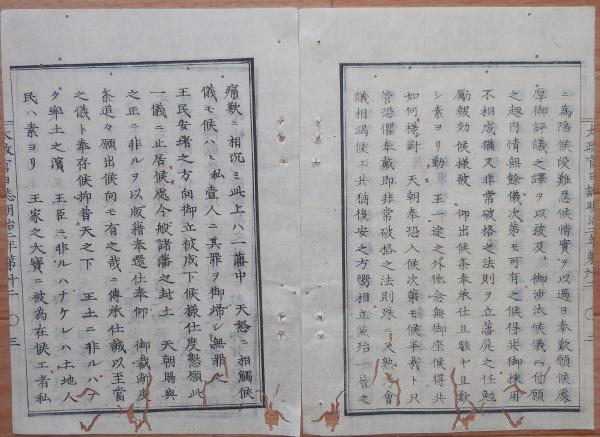 ニ為陷候段難忍候情實ヲ以過日奉歎願候處
厚御評議之譯ヲ以被及 御沙汰候儀ニ付願
之趣内情無餘儀次第モ可有之候得共御採用
不相成猶又非常破格之法則ヲ立藩屏之任勉
勵報効候様被 仰出候条奉承仕且駭キ且歎
シ素ヨリ勤 王一途之外他念無御座候得共
如何様對 天朝奉恐入候次第モ候半哉ト只
管恐懼奉戴即非常破格之法則殊ニ又熟考會
議相竭候エ共猶後安之方嚮相立兼殆一層之
太政官日誌明治二年第九 〇 二
痛歎ニ相沉ミ此上ハ一藩中 天怒ニ相觸候
儀モ候ハヽ私壹人ニ其罪ヲ御歸シ無罪之
王民安堵之方向御立被成下候様仕度懇願此
一儀ニ止居候處今般諸藩之封土 天朝賜與
之正ニ非ルヲ以版籍奉還仕奉仰 御裁斷度
条追々願出候向モ有之哉ニ傳承仕誠以至當
之儀ト奉存候抑普天之下 王土ニ非ルハナ
ク率土之濱 王臣ニ非ルハナケレハ土地人
民ハ素ヨリ 王家之大寶ニ被為在候エ者私
太政官日誌明治二年第十二 〇 三